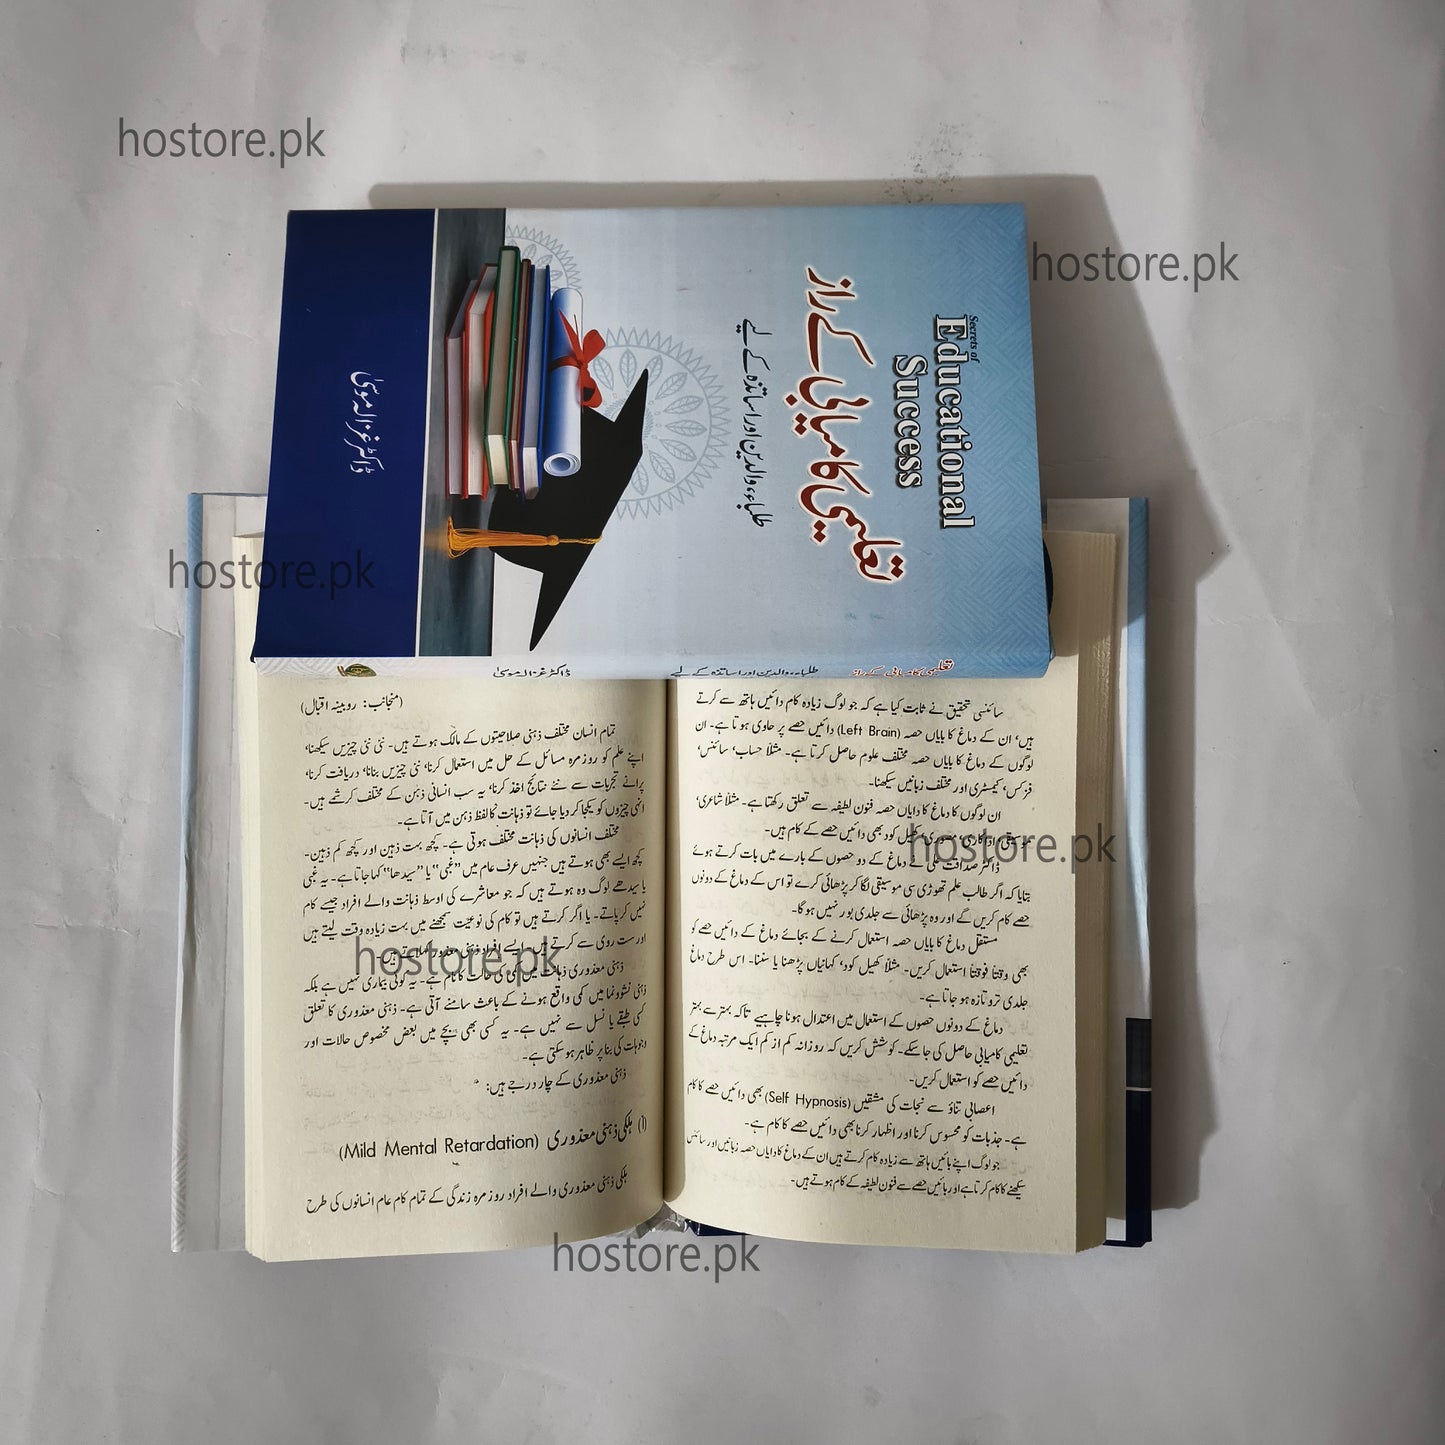 hostore.pk
hostore.pk
Secrets of
Educational
Success
تعلیمی کامیابی کے راز
طلباء، والدین اور اساتذہ کے لیے
ڈاکٹر غزالہ موسیٰ
hostore.pk
تعلیمی کامیابی کے راز
طلباء، والدین اور اساتذہ کے لیے
ڈاکٹر غزالہ موسیٰ
سائنسی تحقیق نے ثابت کیا ہے کہ جو لوگ زیادہ کام دائیں ہاتھ سے کرتے
ہیں، ان کے دماغ کا بایاں حصہ (Left Brain) دائیں حصے پر حاوی ہوتا ہے۔ ان
لوگوں کے دماغ کا بایاں حصہ مختلف علوم حاصل کرتا ہے۔ مثلاً حساب، سائنس،
فزکس، کیمسٹری اور مختلف زبانیں سیکھنا۔
ان لوگوں کا دماغ کا دایاں حصہ فنون لطیفہ سے تعلق رکھتا ہے۔ مثلاً شاعری،
موسیقی، اداکاری، مصوری، کھیل کود بھی دائیں حصے کے کام ہیں۔
hostore.pk
ڈاکٹر صداقت علی نے دماغ کے دو حصوں کے بارے میں بات کرتے ہوئے
بتایا کہ اگر طالب علم تھوڑی سی موسیقی لگا کر پڑھائی کرے تو اس کے دماغ کے دونوں
حصے کام کریں گے اور وہ پڑھائی سے جلدی بور نہیں ہوگا۔
مستقل دماغ کا بایاں حصہ استعمال کرنے کے بجائے دماغ کے دائیں حصے کو
بھی وقتاً فوقتاً استعمال کریں۔ مثلاً کھیل کود، کہانیاں پڑھنا یا سننا۔ اس طرح دماغ
جلدی تروتازہ ہو جاتا ہے۔
دماغ کے دونوں حصوں کے استعمال میں اعتدال ہونا چاہیے تاکہ بہتر سے بہتر
تعلیمی کامیابی حاصل کی جاسکے۔ کوشش کریں کہ روزانہ کم از کم ایک مرتبہ دماغ کے
دائیں حصے کو استعمال کریں۔
اعصابی تناؤ سے نجات کی مشقیں (Self Hypnosis) بھی دائیں حصے کا کام
ہے۔ جذبات کو محسوس کرنا اور اظہار کرنا بھی دائیں حصے کا کام ہے۔
جو لوگ اپنے بائیں ہاتھ سے زیادہ کام کرتے ہیں ان کے دماغ کا دایاں حصہ زبانیں اور سائنس
سیکھنے کا کام کرتا ہے اور بائیں حصے سے فنون لطیفہ کے کام ہوتے ہیں۔
(منجانب: روبینہ اقبال)
تمام انسان مختلف ذہنی صلاحیتوں کے مالک ہوتے ہیں۔ نئی نئی چیزیں سیکھنا،
اپنے علم کو روزمرہ مسائل کے حل میں استعمال کرنا، نئی چیزیں بنانا، دریافت کرنا،
پرانے تجربات سے نئے نتائج اخذ کرنا، یہ سب انسانی ذہن کے مختلف کرشمے ہیں۔
انہی چیزوں کو یکجا کر دیا جائے تو ذہانت کا لفظ ذہن میں آتا ہے۔
مختلف انسانوں کی ذہانت مختلف ہوتی ہے۔ کچھ بہت ذہین اور کچھ کم ذہین۔
کچھ ایسے بھی ہوتے ہیں جنہیں عرف عام میں ”غبی“ یا ”سیدھا“ کہا جاتا ہے۔ یہ غبی
یا سیدھے لوگ وہ ہوتے ہیں کہ جو معاشرے کی اوسط ذہانت والے افراد جیسے کام
نہیں کر پاتے۔ یا اگر کرتے ہیں تو کام کی نوعیت سمجھنے میں بہت زیادہ وقت لیتے ہیں
اور سست روی سے کرتے ہیں۔ ایسے افراد ذہنی معذور کہلاتے ہیں۔
hostore.pk
ذہنی معذوری ذہانت میں کمی کی حالت کا نام ہے۔ یہ کوئی بیماری نہیں ہے بلکہ
ذہنی نشوونما میں کمی واقع ہونے کے باعث سامنے آتی ہے۔ ذہنی معذوری کا تعلق
کسی طبقے یا نسل سے نہیں ہے۔ یہ کسی بھی بچے میں بعض مخصوص حالات اور
وجوہات کی بنا پر ظاہر ہو سکتی ہے۔
ذہنی معذوری کے چار درجے ہیں:
(۱) ہلکی ذہنی معذوری (Mild Mental Retardation)
ہلکی ذہنی معذوری والے افراد روزمرہ زندگی کے تمام کام عام انسانوں کی طرح
hostore.pk